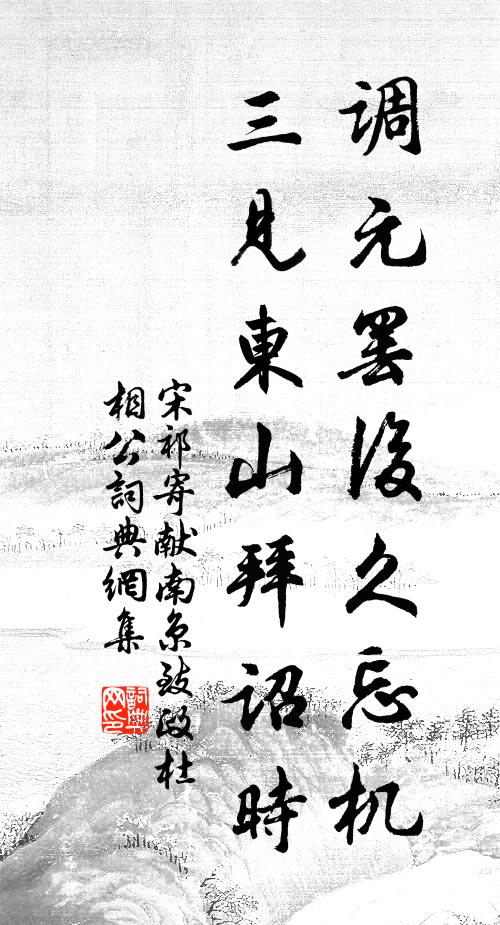 调元罢后久忘机
三見東山拜詔時
宋祁寄献南京致政杜
相公詞典網集
詞典网印